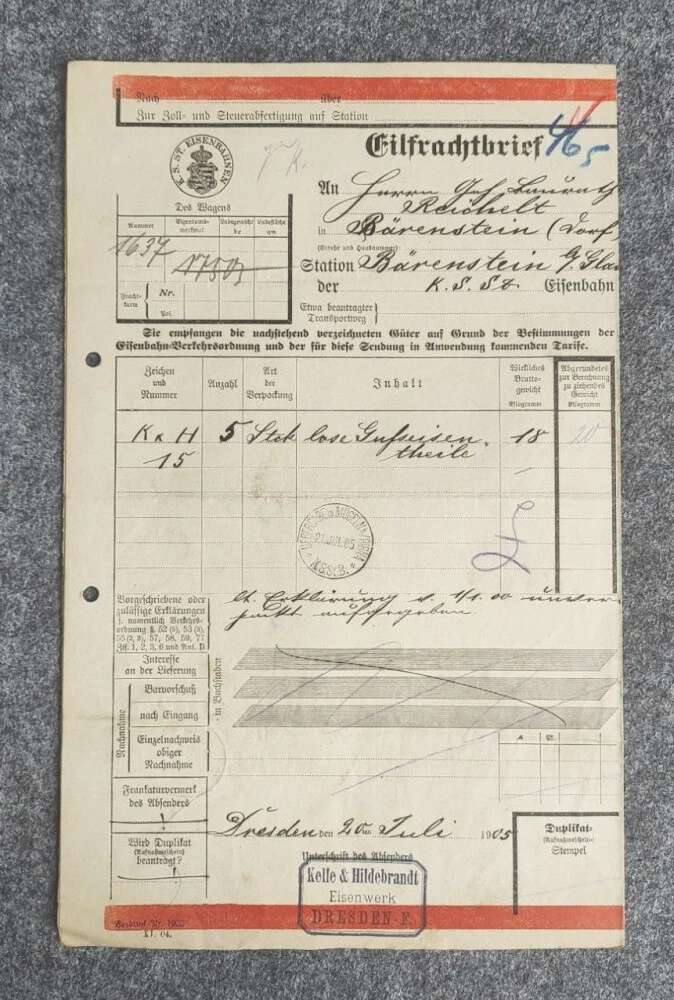 Nach über
Zur Zoll- und Steuerabfertigung auf Station
K. S. ST. EISENBAHNEN
Eilfrachtbrief
Des Wagens
Nummer Eigentums-merkmal Ladegewicht kg Ladefläche qm
1637
17503
Fracht-karte Nr.
Pos.
An Herrn Geh. Baurath
Reichelt
in Bärenstein (Dorf
(Straße und Hausnummer)
Station Bärenstein
der K. S. St Eisenbahn
Etwa beantragter
Transportweg
Sie empfangen die nachstehend verzeichneten Güter auf Grund der Bestimmungen der
Eisenbahn-Verkehrsordnung und der für diese Sendung in Anwendung kommenden Tarife.
Zeichen und Nummer
Anzahl
Art der Verpackung
Inhalt
Wirkliches Brutto-gewicht Kilogramm
Abgerundetes zur Berechnung zu ziehendes Gewicht Kilogramm
K & H 5 Stck lose Gußeisen 18 20
15 theile
21.JUL.05
K.S.St.B.
Vorgeschriebene oder
zulässige Erklärungen
lt. Erklärung v. 1/1.00 unver
packt aufgegeben
Interesse
an der Lieferung
Nachnahme
Barvorschuß
nach Eingang
in Buchstaben
Einzelnachweis
obiger
Nachnahme
Frankaturvermerk
des Absenders
Dresden den 20 ten Juli 1905
Wird Duplikat
(Aufnahmeschein)
beantragt?
Duplikat-
(Aufnahmeschein-)
Stempel
Unterschrift des Absenders
Kelle & Hildebrandt
Eisenwerk
DRESDEN-F.
XI. 04.